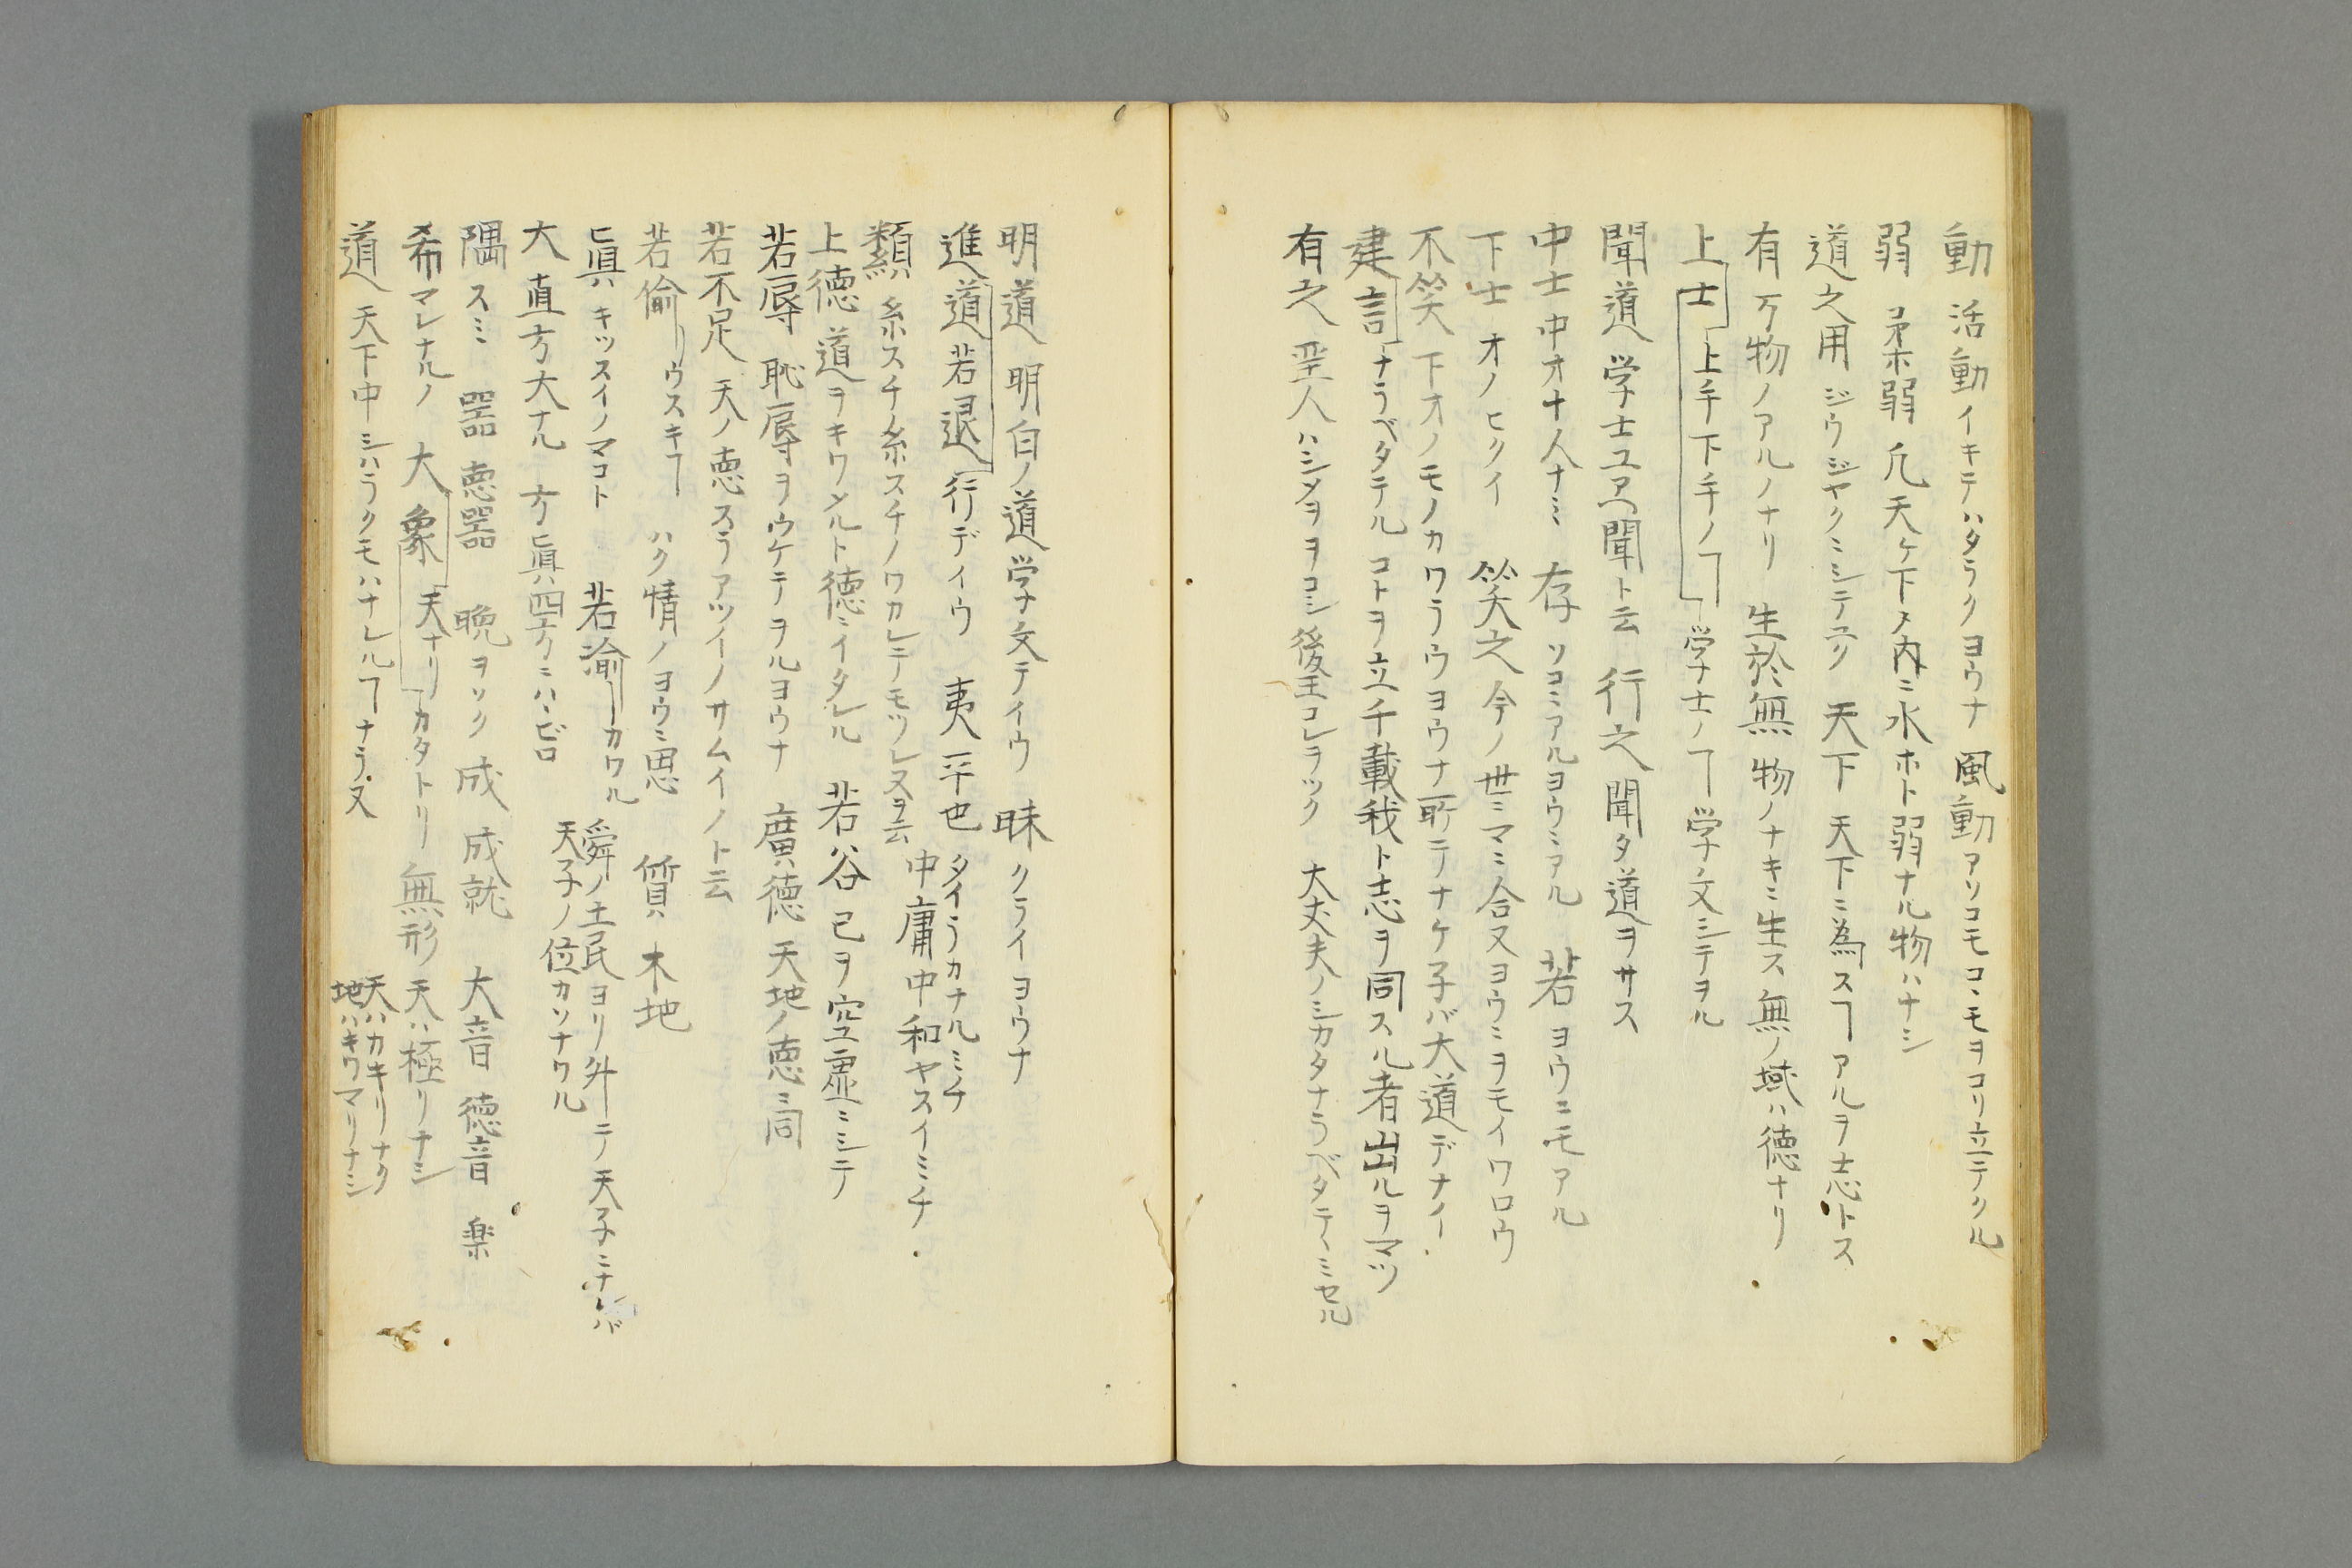 動 活動イキテハタラクヨウナ 風動アソコモコヽモヲコリ立テクル
弱 柔弱 凡天ケ下ノ内ニ水ホト弱ナル物ハナシ
道之用 ジウジヤクニシテ 天下 天下ニ為スヿアルヲ志トス
有 万物ノアルノナリ 生於無 物ノナキニ生ス無ノ域ハ徳ナリ
上士 上手下手ノヿ 学士ノヿ 学文シテヲル
聞道 学士ユヱ聞ト云 行之 聞タ道ヲサス
中士 中オナ人ナミ 存 ソコニアルヨウニアル 若 ヨウニモアル
下士 オノヒクイ 笑之 今ノ世ニマミ合又ヨウニヲモイワロウ
不笑 下オノモノカワラウヨウナ所テナケ子バ大道デナイ
建言 ナラベタテル コトヲ立千載我ト志ヲ同スル者出ルヲマツ
有之 聖人ハシメヲヲコシ後王コレヲツク 大丈夫ノシカタナラベタテヽミセル
明道 明白ノ道学文テイウ 昧 クライヨウナ
進道若退 行デイウ 夷 平也 タイラカナルミチ
中庸中和ヤスイミチ
纇 糸スチノ糸スチノワカレテモツレヌヲ云
上徳 道ヲキワメルト徳ニイタレル 若谷 己ヲ空虚ニシテ
若辱 恥辱ヲウケテヲルヨウナ 廣徳 天地ノ恵ニ同
若不足 天ノ恵スラアツイノサムイノト云
若偷 ウスキヿ ハク情ノヨウニ思 質 木地
眞 キツスイノマコト 若渝 カワル 舜ノ土民ヨリ外ニテ天子ニナケバ
天子ノ位カソナワル
大 直方大ナル 方眞四方ニハヽビロ
隅 スミ 器 恵器 晩 ヲソク 成 成就 大音 徳音 楽
希 マレナルノ 大象 天ナリ カタトリ 無形 天ハ極リナシ
道 天下中シハラクモハナレルヿナラヌ 天ハカキリナク
地ハキワマリナシ